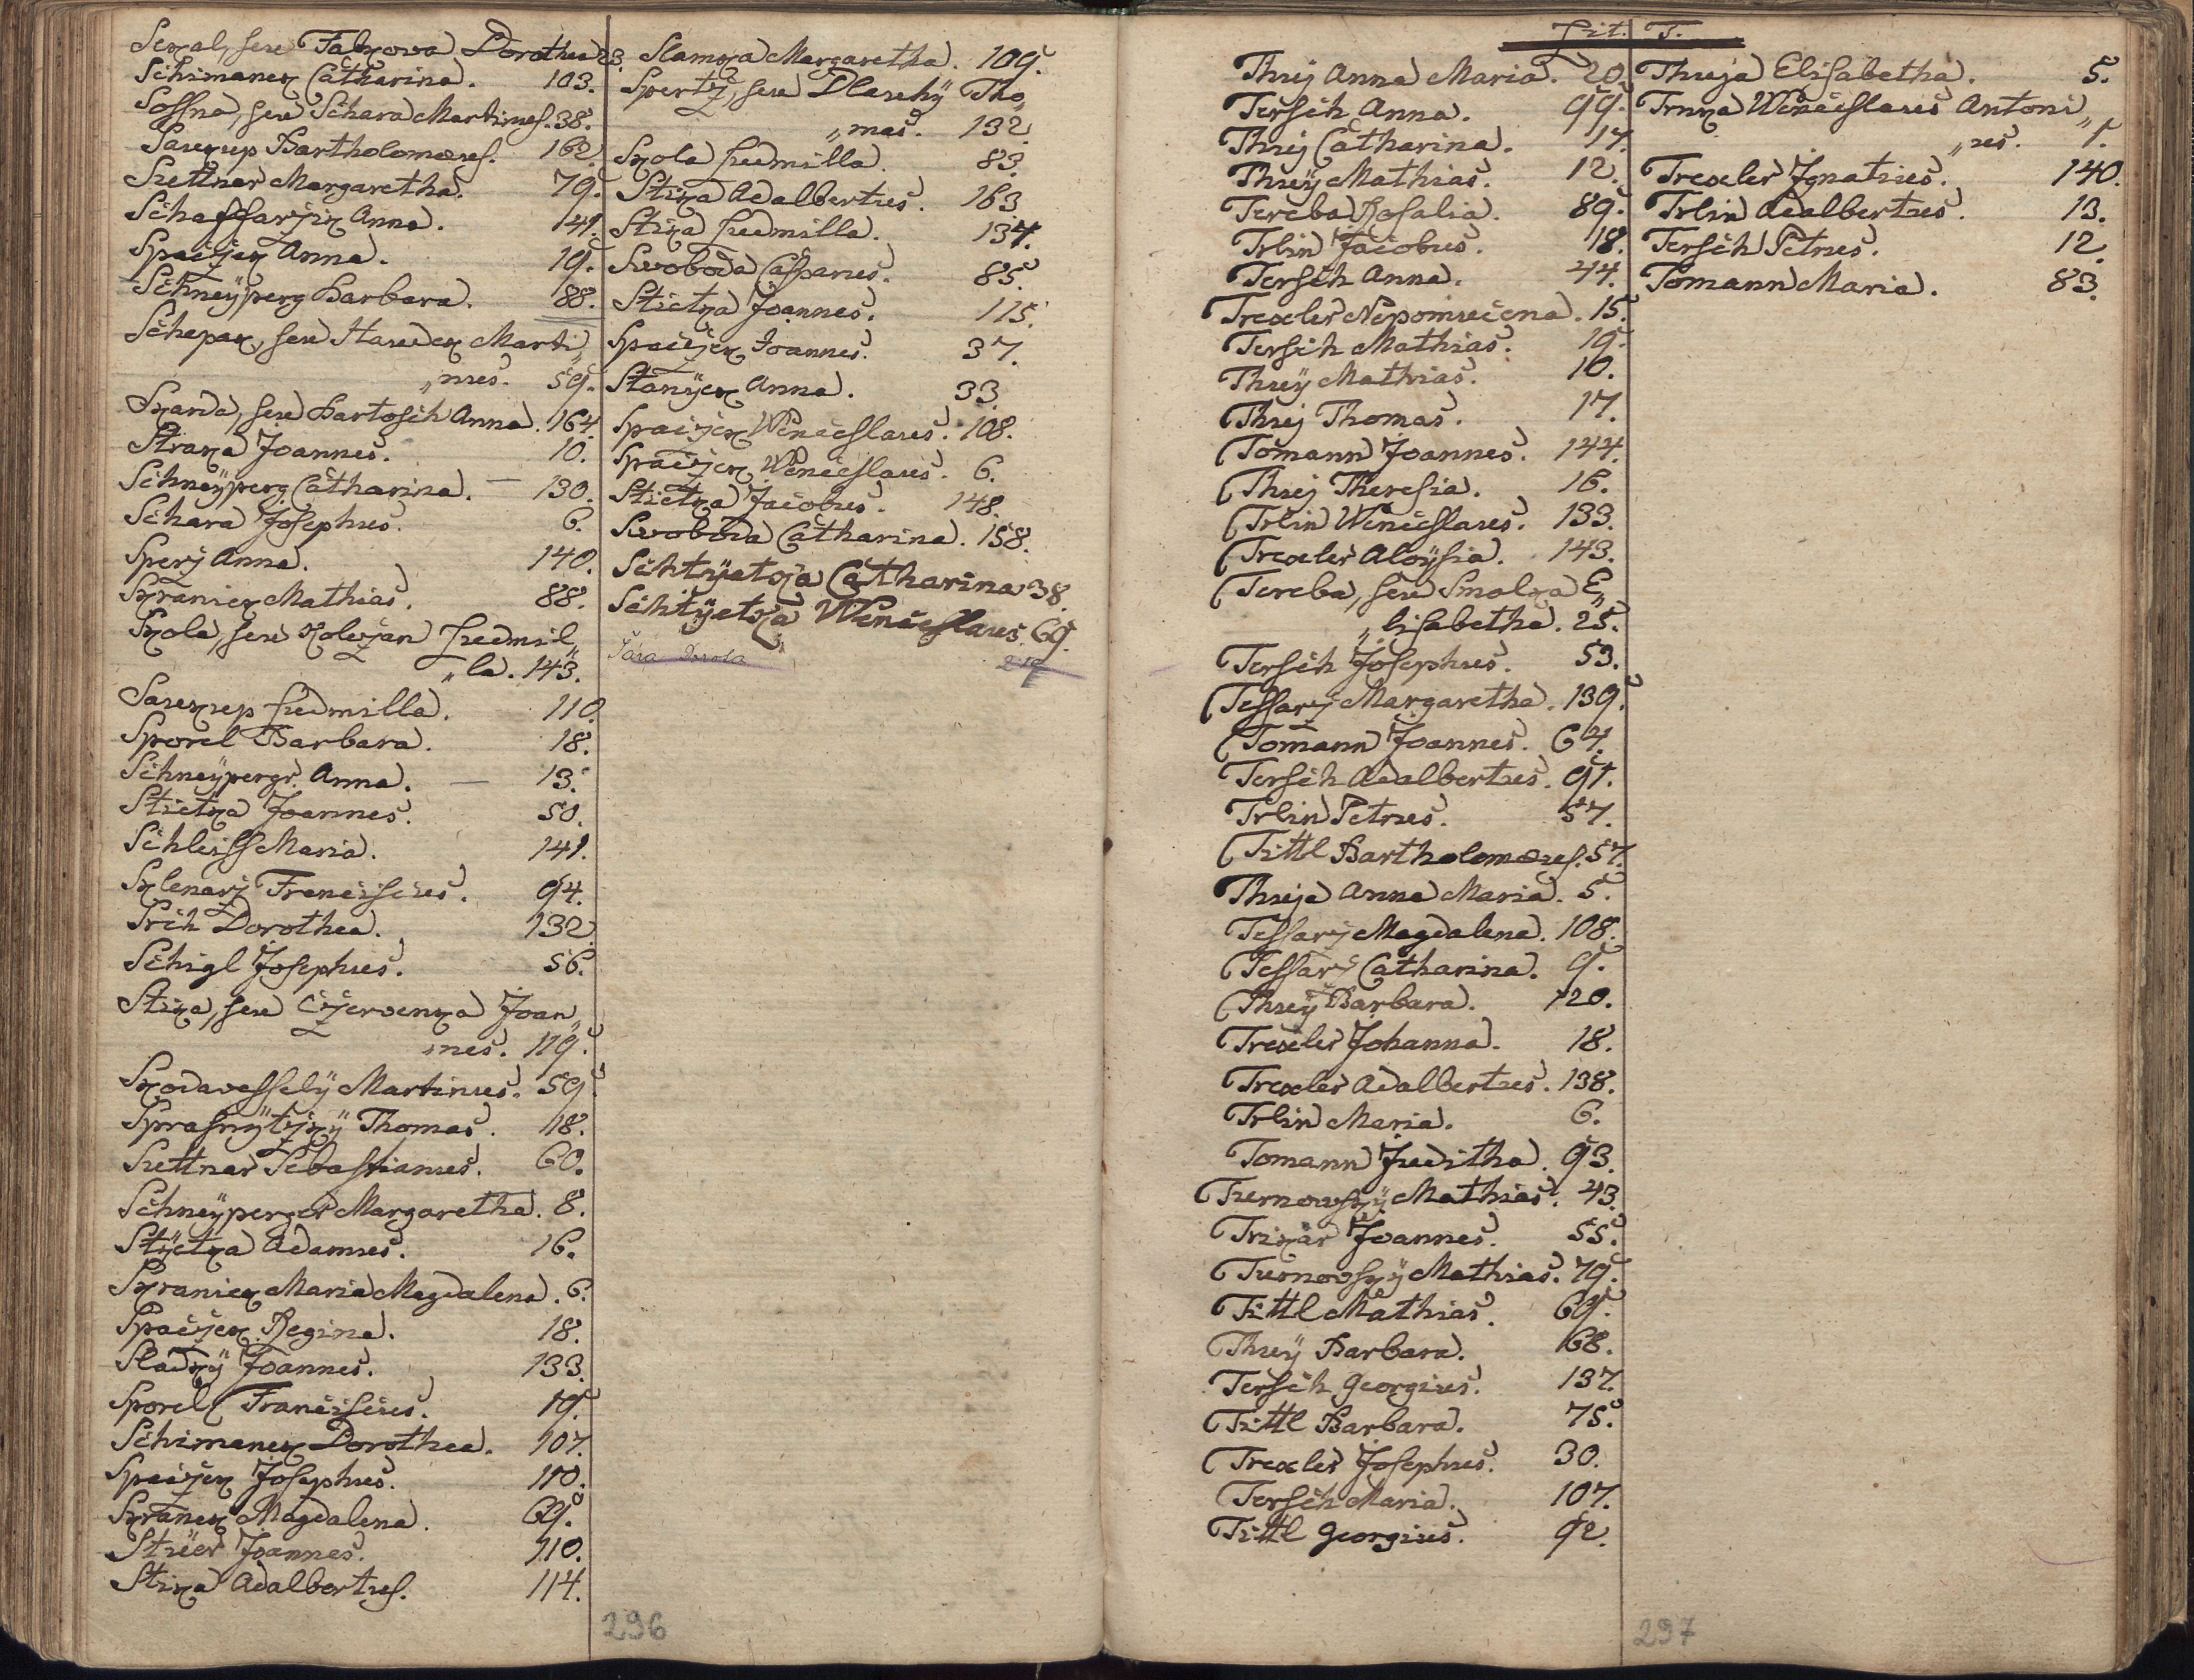 Sekal, seu Falkowa Dorothea 23.
Schimanek Catharina. 103.
Sossna, seu Schara Martinus. 38.
Saukup Bartholomæus. 162.
Suettner Margaretha. 79.
Schaffarzik Anna. 141.
Spaczek Anna. 19.
Schneÿperg Barbara. 88.
Schepak, seu Haudek Marti„
„nus. 59.
Skarda, seu Bartosch Anna. 164.
Straka Joannes. 10.
Schneÿperg Catharina. 130.
Schara Josephus. 6.
Sperj Anna. 140.
Skranick Mathias. 88.
Skola, seu Kolezan Ludmil„
„la. 143.
Saukup Ludmilla. 110.
Sporel Barbara. 18.
Schneÿpergr. Anna. 13.
Stietka Joannes. 50.
Schleiss Maria. 141.
Sklenarz Franciscus. 94.
Srch Dorothea. 132.
Schigl Josephus. 56.
Stika, seu Czervenka Joan„
„nes. 119.
Skodavesselÿ Martinus. 59.
Sprasnÿtzkÿ Thomas. 18.
Suettner Sebastianus. 60.
Schneÿperger Margaretha. 8.
Stÿetka Adamus. 16.
Skranick Maria Magdalena. 6.
Spaczek Regina. 18.
Sladkÿ Joannes. 133.
Sporel Franciscus. 19.
Schimanek Dorothea. 107.
Spaczek Josephus. 110.
Skranek Magdalena. 69.
Stuer Joannes. 110.
Stika Adalbertus. 114.
Slamka Margaretha. 109.
Spertz, seu Dlauhÿ Tho„
„mas. 132.
Skola Ludmilla. 83.
Stika Adalbertus. 163.
Stika Ludmilla. 134.
Swoboda Casparus. 85.
Stietka Joannes. 115.
Spaczek Joannes. 37.
Stanÿek Anna. 33.
Spaczek Wenceslaus. 108.
Spaczek Wenceslaus. 6.
Stietka Jacobus. 148.
Swoboda Catharina. 158.
Schtÿetka Catharina 38.
Schtÿetka Wenceslaus. 69.
296
Lit. T.
Thuÿ Anna Maria. 20.
Tersch Anna. 99.
Thuj Catharina. 17.
Thuÿ Mathias. 12.
Tereba Rosalia. 89.
Trlin Jacobus. 18.
Tersch Anna. 44.
Trexler Nepomucena. 15.
Tersch Mathias. 19.
Thuÿ Mathias. 10.
Thuj Thomas. 17.
Tomann Joannes. 144.
Thuj Theresia. 16.
Trlin Wenceslaus. 133.
Trexler Aloÿsia. 143.
Tereba, seu Smolka E„
„lisabetha. 25.
Tersch Josephus. 53.
Tessarz Margaretha. 139.
Tomann Joannes. 64.
Tersch Adalbertus. 91.
Trlin Petrus. 57.
Tittl Bartholomæus. 57.
Thuja Anna Maria. 5.
Tessarz Magdalena. 108.
Tessarz Catharina. 9.
Thuÿ Barbara. 120.
Trexler Johanna. 18.
Trexler Adalbertus. 138.
Trlin Maria. 6.
Tomann Juditha. 93.
Turnowskÿ Mathias. 43.
Trikar Joannes. 55.
Turnovskÿ Mathias. 79.
Tittl Mathias. 69.
Thuÿ Barbara. 68.
Tersch Georgius. 137.
Tittl Barbara. 75.
Trexler Josephus. 30.
Tersch Maria. 107.
Tittl Georgius. 92.
Thuja Elisabetha. 5.
Trnka Wenceslaus Antoni„
„us. 1.
Trexler Ignatius. 140.
Trlin Adalbertus. 13.
Tersch Petrus. 12.
Tomann Maria. 83.
297